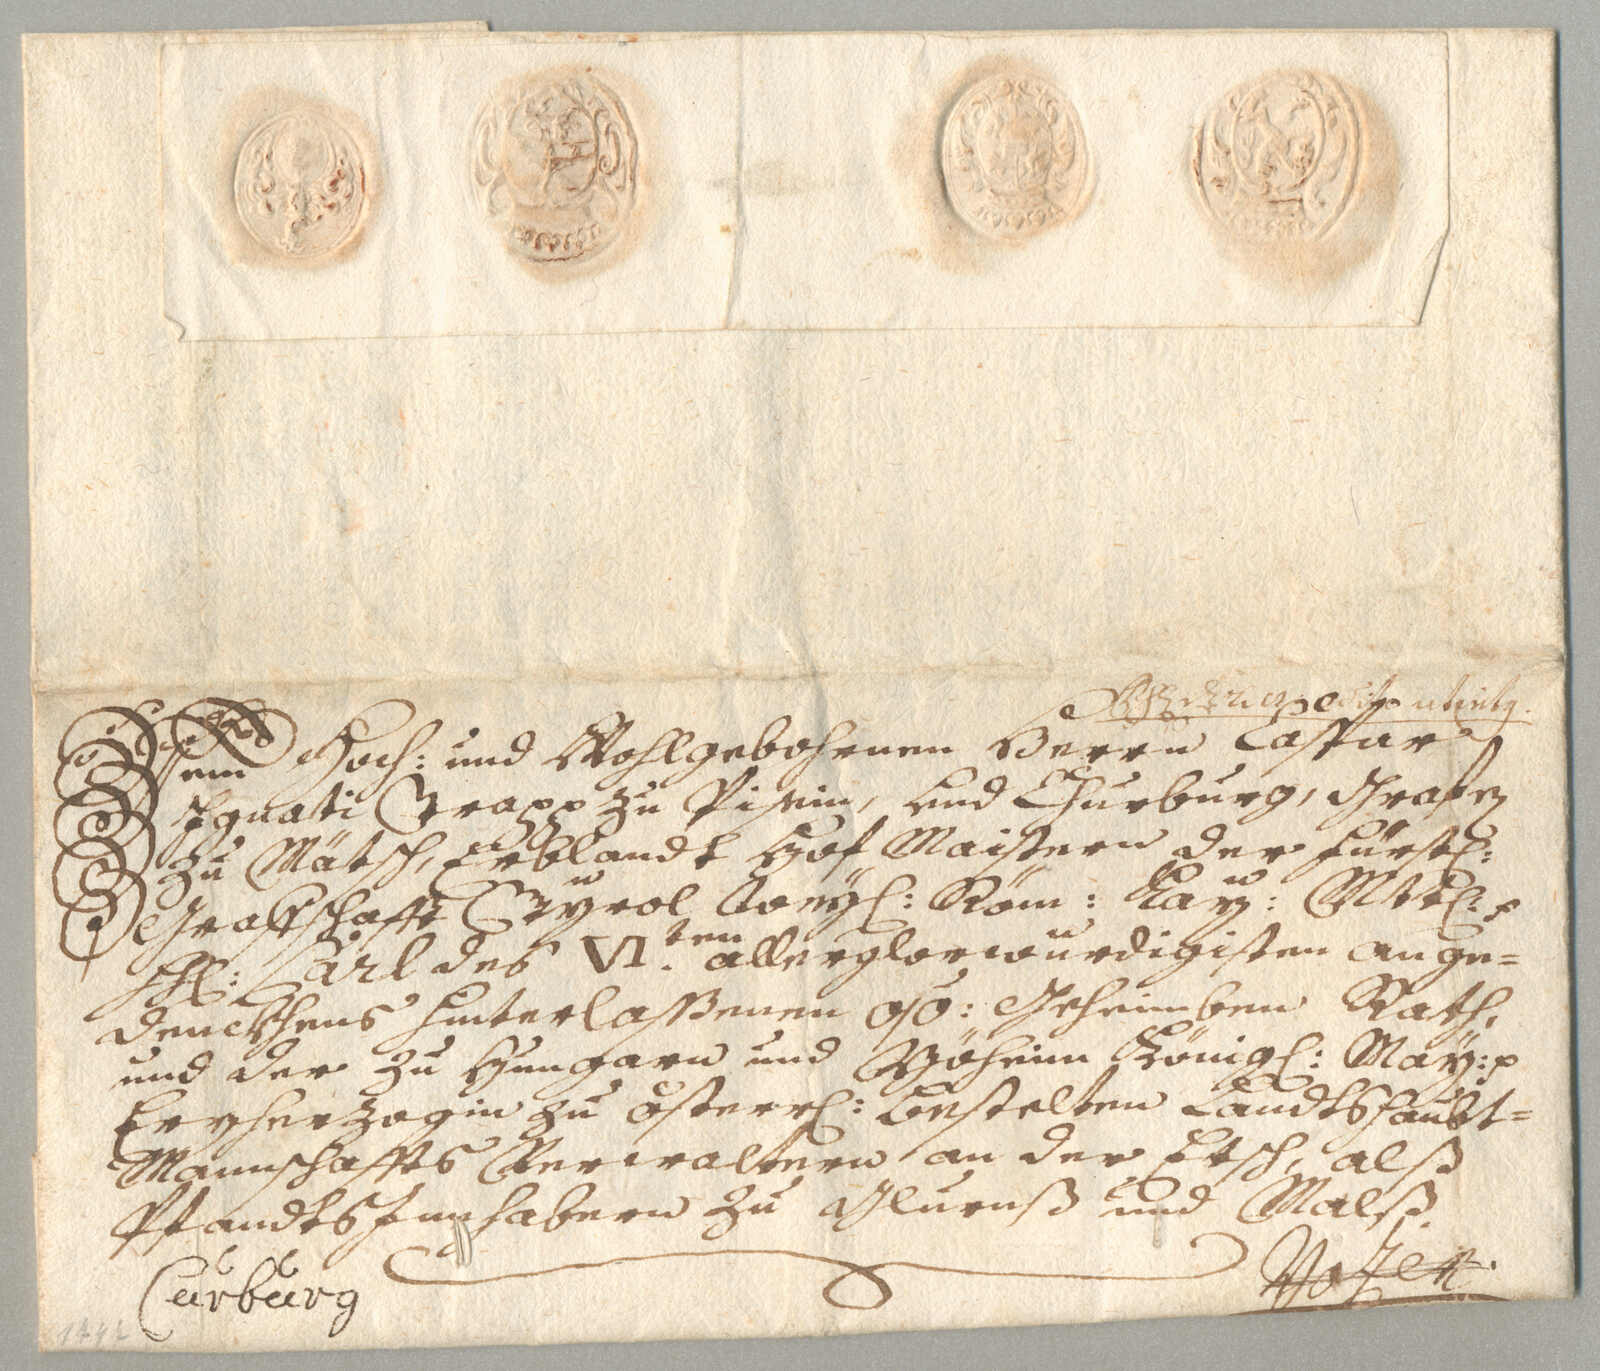 Dem Hoch: und Wohlgebohrnen Herrn Caspar
Ignati Trapp zu Pisein, und Churburg, Grafen
zu Mätsch, Erblandt Hof Maistern der Fürstl:
Graffschafft Tyrol Weyl: Röm: Kay: Mtt:
Carl des VI.ten allerglorwürdigisten ange=
denckhens hinterlaßenen o/ö: Geheimben Rath,
und der zu Hungarn und Böheim Königl: May:
Erzherzogin zu Österrl: bestelten Landtshaubt=
Mannschaffts Verwaltern an der Etsch, alß
Pfandts Innhabern zu Glurnß und Malß.
Curburg
Bozen.